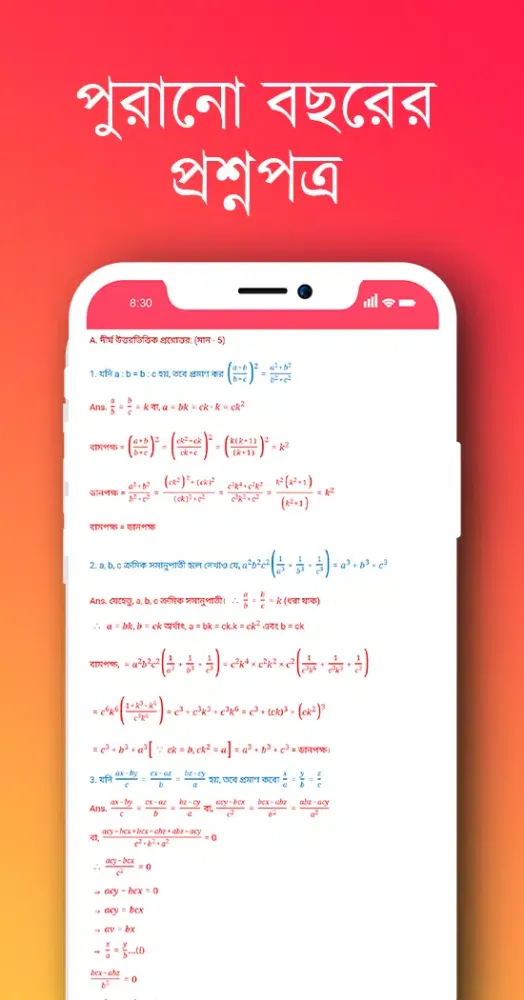 পুরানো বছরের
প্রশ্নপত্র
8:30
A. দীর্ঘ উত্তরভিত্তিক প্রশ্নোত্তর: (মান - 5)
1. যদি a : b = b : c হয়, তবে প্রমাণ কর ((a+b)/(b+c))² = (a²+b²)/(b²+c²)
Ans. a/b = b/c = k বা, a = bk = ck · k = ck²
বামপক্ষ = ((a+b)/(b+c))² = ((ck²+ck)/(ck+c))² = (k(k+1)/(k+1))² = k²
ডানপক্ষ = (a²+b²)/(b²+c²) = ((ck²)²+(ck)²)/((ck)²+c²) = (c²k⁴+c²k²)/(c²k²+c²) = k²(k²+1)/(k²+1) = k²
বামপক্ষ = ডানপক্ষ
2. a, b, c ক্রমিক সমানুপাতী হলে দেখাও যে, a²b²c²(1/a³ + 1/b³ + 1/c³) = a³ + b³ + c³
Ans. যেহেতু, a, b, c ক্রমিক সমানুপাতী। ∴ a/b = b/c = k (ধরা যাক)
∴ a = bk, b = ck অর্থাৎ, a = bk = ck.k = ck² এবং b = ck
বামপক্ষ, = a²b²c²(1/a³ + 1/b³ + 1/c³) = c²k⁴ × c²k² × c²(1/c³k⁶ + 1/c³k³ + 1/c³)
= c⁶k⁶((1+k³+k⁶)/c³k⁶) = c³ + c³k³ + c³k⁶ = c³ + (ck)³ + (ck²)³
= c³ + b³ + a³[ ∵ ck = b, ck² = a] = a³ + b³ + c³ = ডানপক্ষ।
3. যদি (ax-by)/c = (cx-az)/b = (bz-cy)/a হয়, তবে প্রমাণ করো x/a = y/b = z/c
Ans. (ax-by)/c = (cx-az)/b = (bz-cy)/a বা, (acy-bcx)/c² = (bcx-abz)/b² = (abz-acy)/a²
বা, (acy-bcx+bcx-abz+abz-acy)/(c²+b²+a²) = 0
∴ (acy-bcx)/c² = 0
→ acy - bcx = 0
→ acy = bcx
→ ay = bx
→ x/a = y/b ...(i)
(bcx-abz)/b² = 0